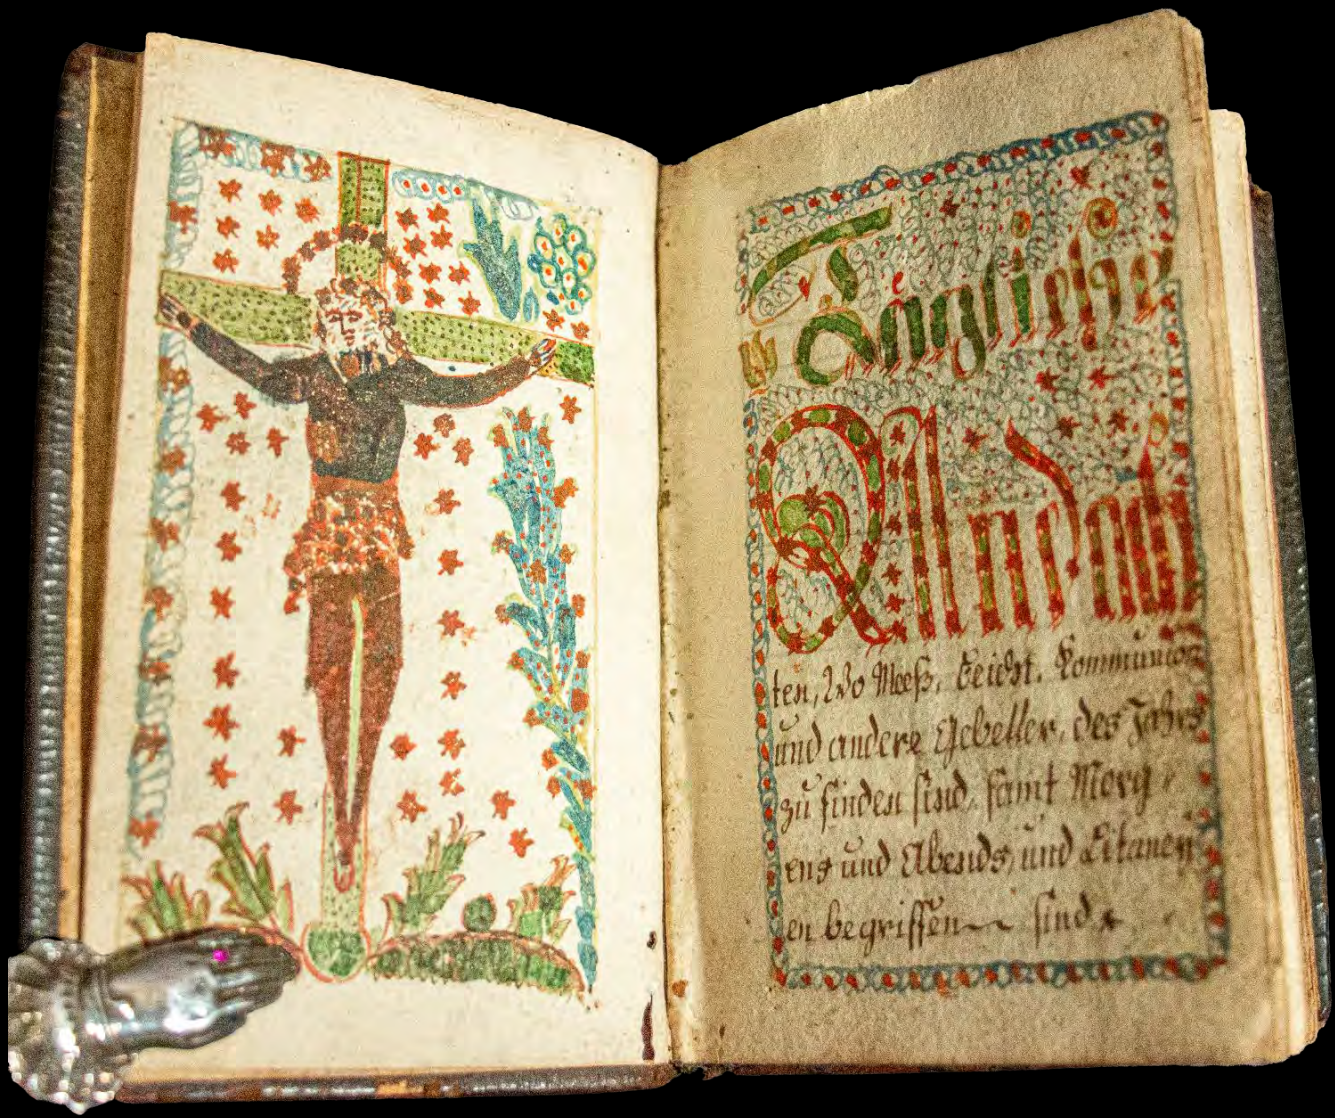 Tägliche
Andach
ten, Wo Meeß, Beicht, Kommunion
und andere Gebetter, des Jahrs
zu finden sind, samt Morg
ens und Abends, und Litaney
en begriffen sind